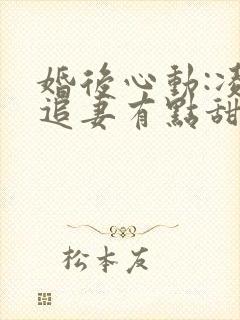 婚後心動:凌
追妻有點甜
松本友